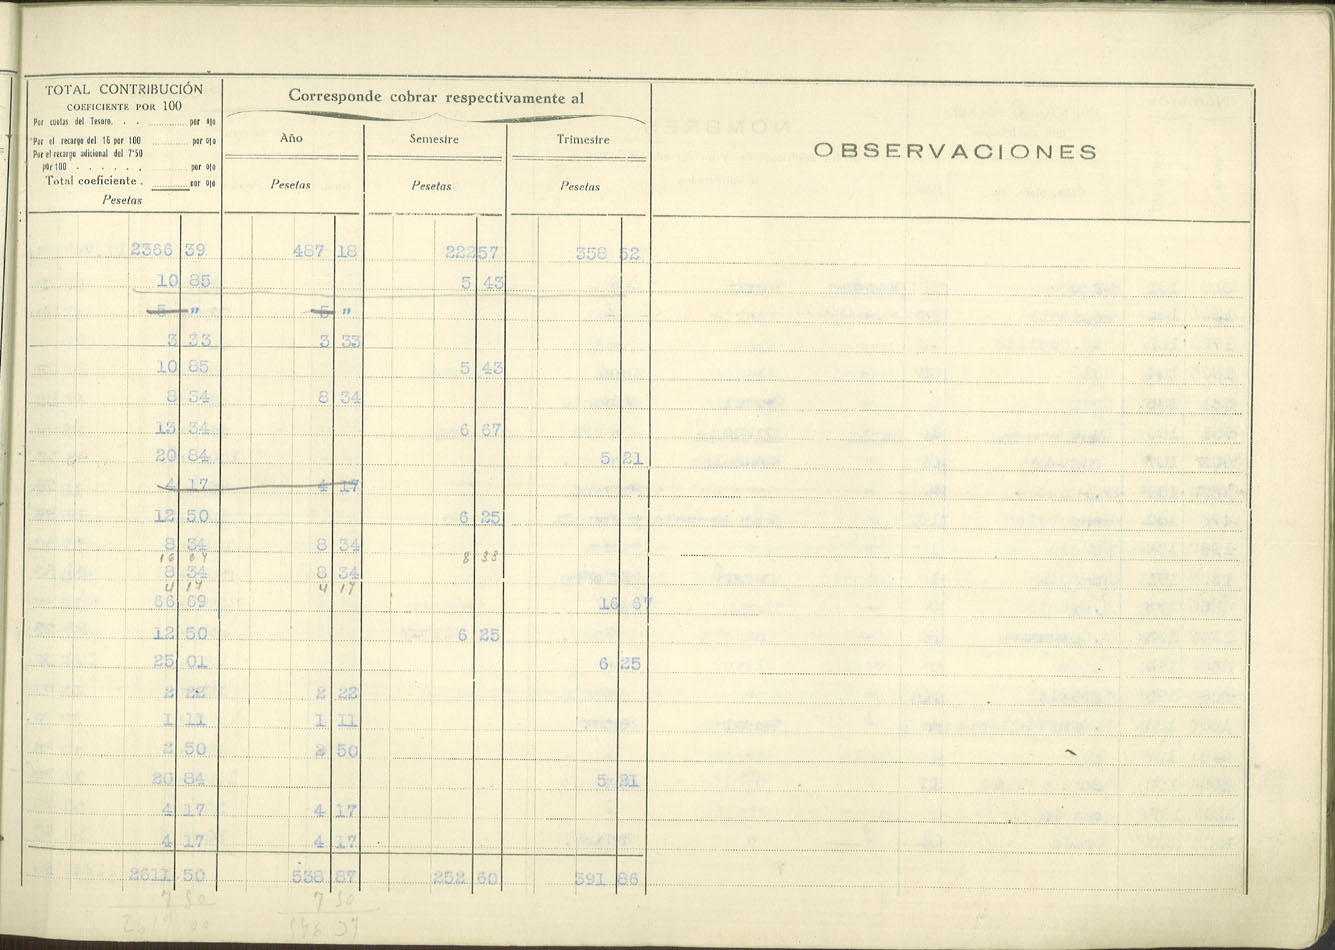 TOTAL CONTRIBUCIÓN
COEFICIENTE POR 100
Por cuotas del Tesoro. . . ............ por 0|0
Por el recargo del 16 por 100 ............ por 0|0
Por el recargo adicional del 7'50
por 100 . . . . . . ............ por 0|0
Total coeficiente . ............ por 0|0
Pesetas
Corresponde cobrar respectivamente al
Año Semestre Trimestre
Pesetas Pesetas Pesetas
OBSERVACIONES
2366 39 487 18 222 57 358 52
10 85 5 43
5 " 5 "
3 33 3 33
10 85 5 43
8 34 8 34
13 34 6 67
20 84 5 21
4 17 4 17
12 50 6 25
8 34 8 34
16 67 8 33
8 34 8 34
4 17 4 17
66 69 16 67
12 50 6 25
25 01 6 25
2 22 2 22
1 11 1 11
2 50 2 50
20 84 5 21
4 17 4 17
4 17 4 17
2611 50 538 87 252 60 391 86